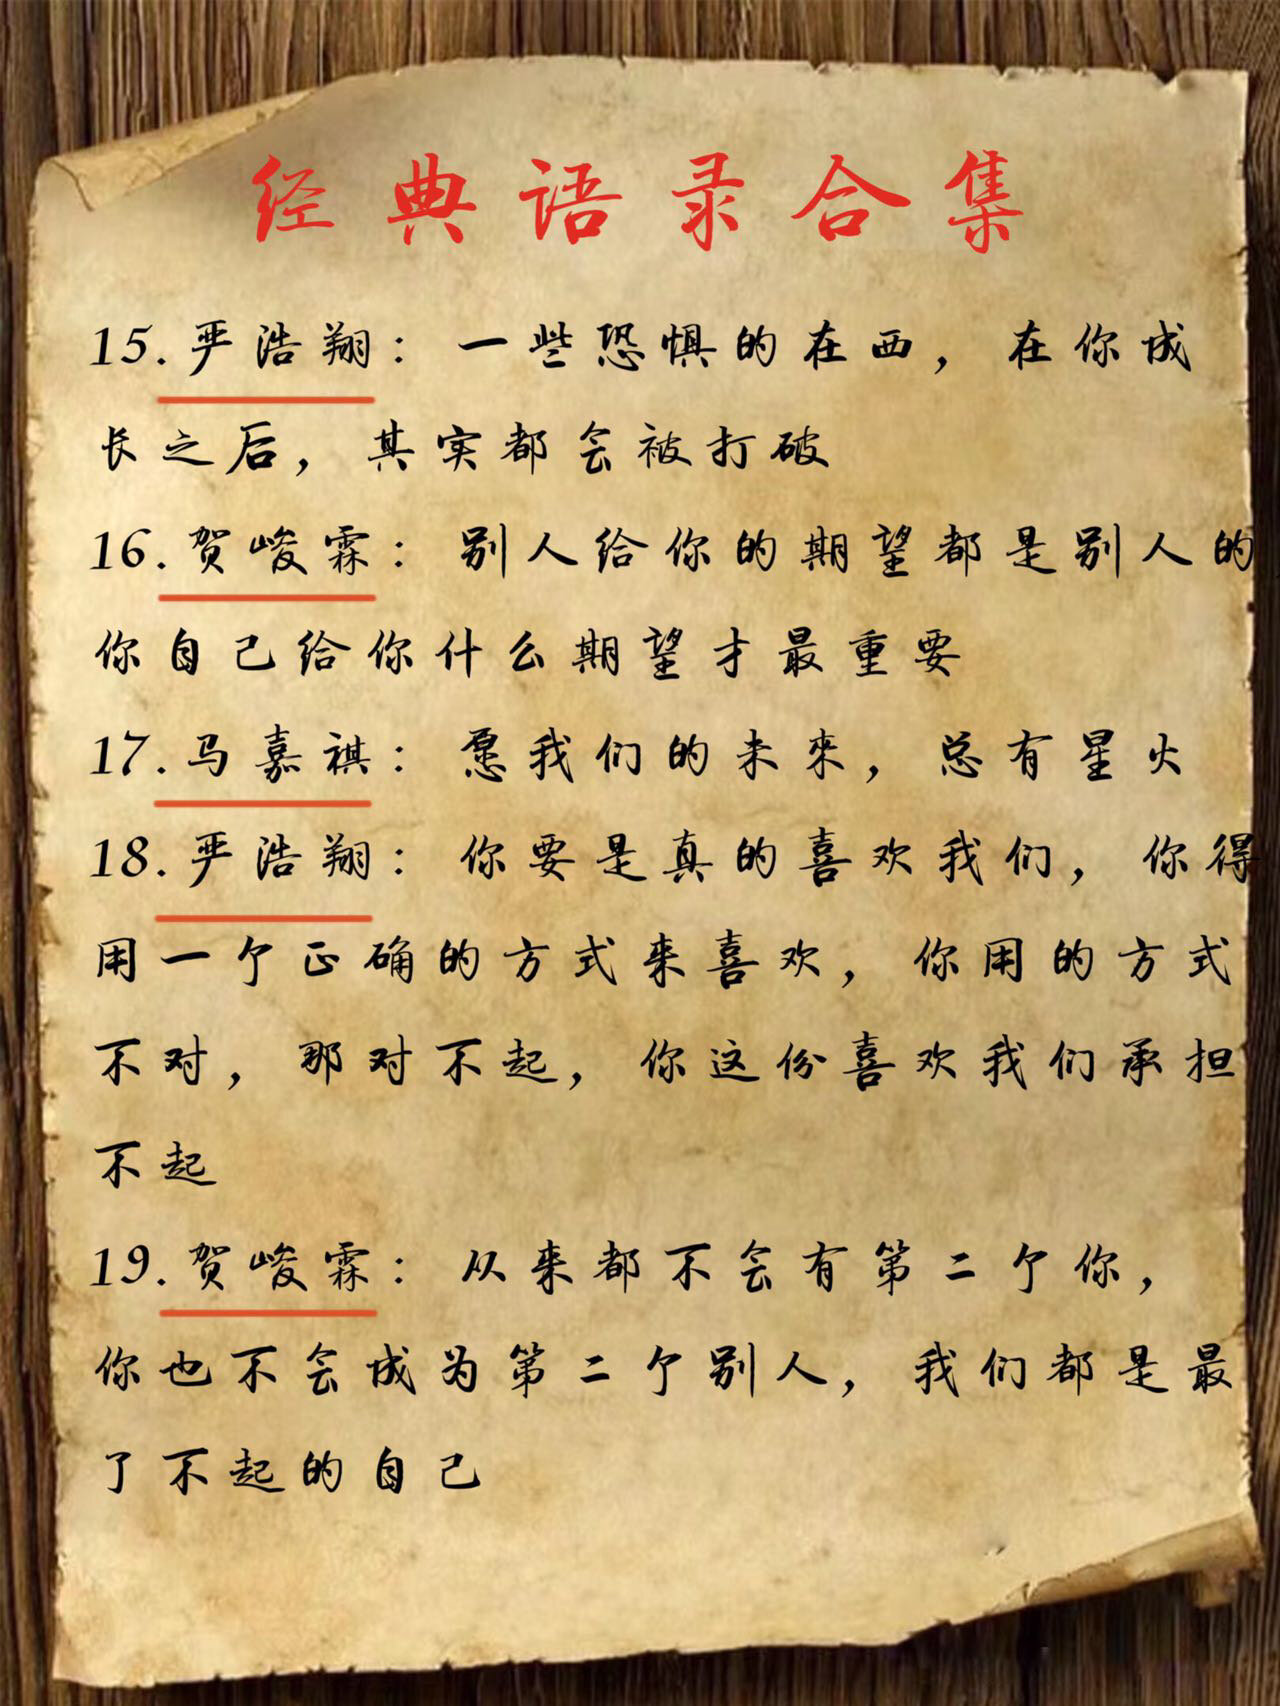 经典语录合集
15.严浩翔：一些恐惧的在西，在你成
长之后，其实都会被打破
16.贺峻霖：别人给你的期望都是别人的
你自己给你什么期望才最重要
17.马嘉祺：愿我们的未来，总有星火
18.严浩翔：你要是真的喜欢我们，你得
用一个正确的方式来喜欢，你用的方式
不对，那对不起，你这份喜欢我们承担
不起
19.贺峻霖：从来都不会有第二个你，
你也不会成为第二个别人，我们都是最
了不起的自己